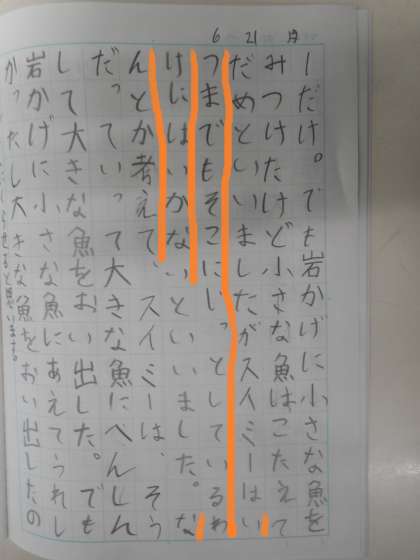 6 21 月
ーだけ。でも岩かげに小さな魚を
みつけたけど小さな魚はこたえて
だめといいましたがスイミーはい
つまでもそこにじっとしているわ
けにはいかない、といいました。な
んとか考えて、スイミーは、そう
だっていって大きな魚にへんしん
して大きな魚をおい出した。でも
岩かげに小さな魚にあえてうれし
かったし大きな魚をおい出したの
らせると思います。